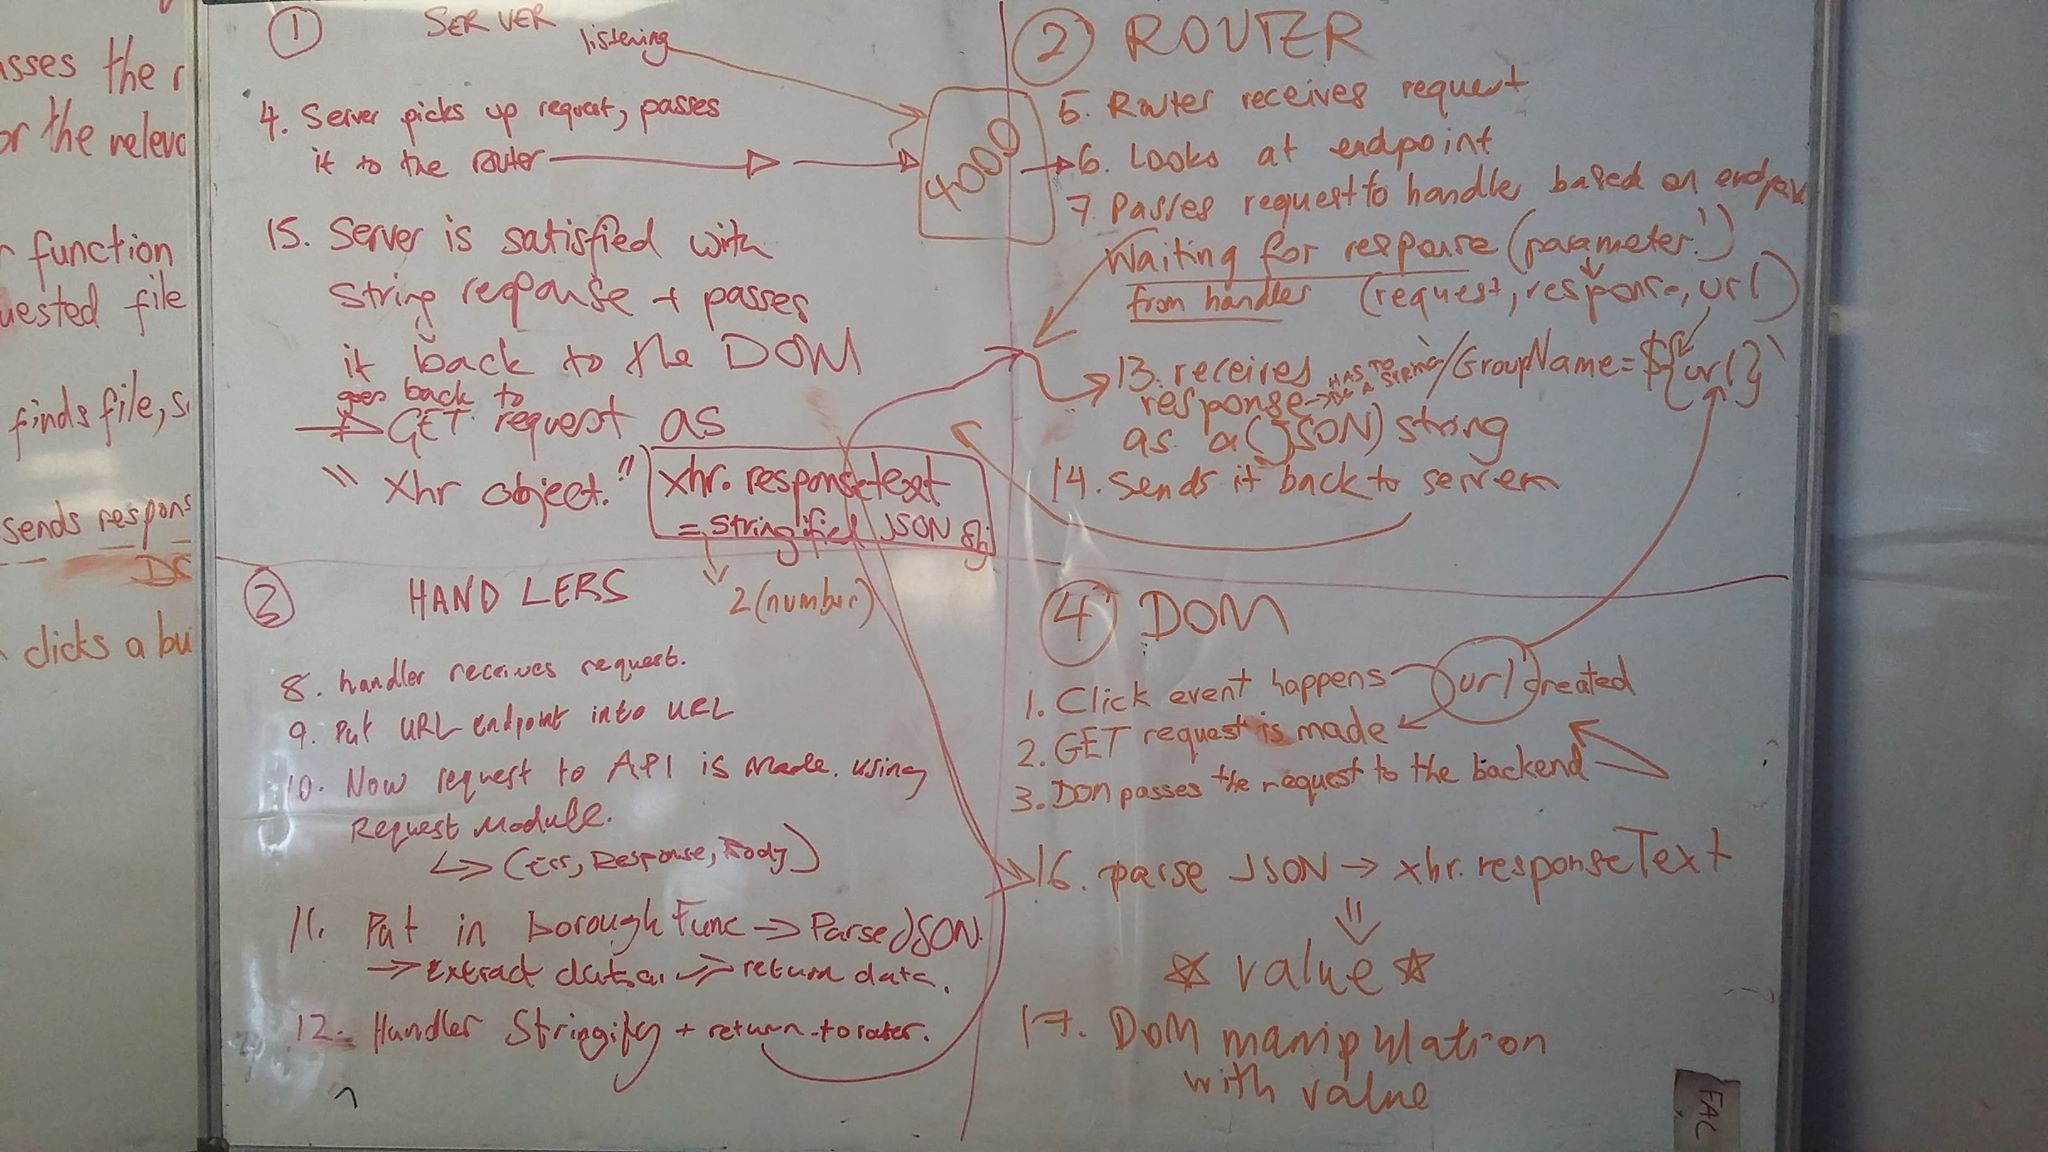 sses the r
or the releva
r function
uested file
finds file, s
sends respons
DS
clicks a bu
1 SERVER
listening
4. Server picks up request, passes
it to the router
4000
15. Server is satisfied with
string reqponse + passes
it back to the DOM
goes back to
GET request as
"Xhr object."
xhr.responsetext
= stringified JSON obj
2 (number)
2 ROUTER
5. Router receives request
6. Looks at endpoint
7. Passes request to handler based on
Waiting for response (parameter!)
from handler (request, response, url)
13. receives HAS TO BE A STRING /GroupName=${url}`
response
as a (JSON) string
14. sends it back to server
3 HANDLERS
8. handler receives request.
9. Put URL endpoint into URL
10. Now request to API is made. using
Request Module.
(Err, Response, Body)
11. Put in boroughFunc → Parse JSON.
→ extract data. → return data.
12. Handler Stringify + return to router.
4 DOM
1. Click event happens url created
2. GET request is made
3. DOM passes the request to the backend
16. parse JSON → xhr.responseText
☆ value ☆
17. DOM manipulation
with value
FAC